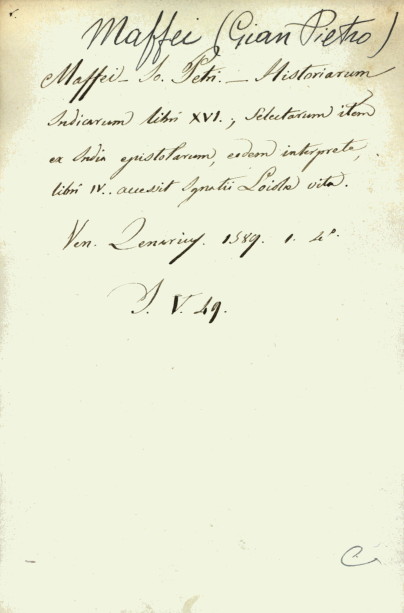 Maffei (Gian Pietro)
Maffei - Jo. Petri. - Historiarum
Indicarum libri XVI., Selectarum item
ex India epistolarum, eodem interprete,
libri IV. accessit Ignatii Loiolæ vita.
Ven. Zenarius. 1589. 1. 4°.
V. 49.
C